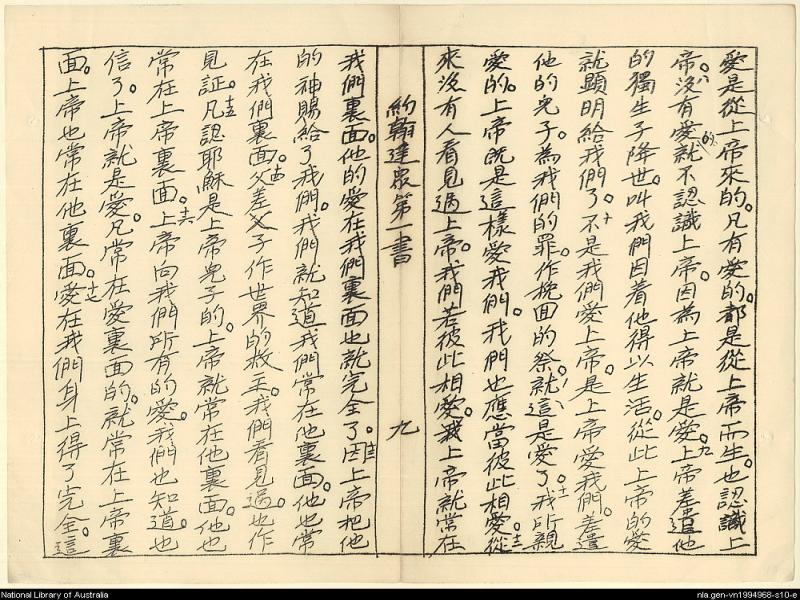 愛是從上帝來的。凡有愛的。都是從上帝而生。也認識上
帝。八沒有愛的。就不認識上帝。因為上帝就是愛。九上帝差遣他
的獨生子降世。叫我們因着他得以生活。從此上帝的愛
就顯明給我們了。十不是我們愛上帝。是上帝愛我們。差遣
他的兒子。為我們的罪。作挽面的祭。就這是愛了。十一我所親
愛的。上帝既是這樣愛我們。我們也應當彼此相愛。十二從
來沒有人看見過上帝。我們若彼此相愛。上帝就常在
約翰達眾第一書 九
我們裏面。他的愛在我們裏面也就完全了。十三因上帝把他
的神賜給了我們。我們就知道我們常在他裏面。他也常
在我們裏面。十四父差父子作世界的救主。我們看見過。也作
見証。十五凡認耶穌是上帝兒子的。上帝就常在他裏面。他也
常在上帝裏面。十六上帝向我們所有的愛。我們也知道。也
信了。上帝就是愛。凡常在愛裏面的。就常在上帝裏
面。上帝也常在他裏面。十七愛在我們身上得了完全。這
National Library of Australia
nla.gen-vn1994968-s10-e